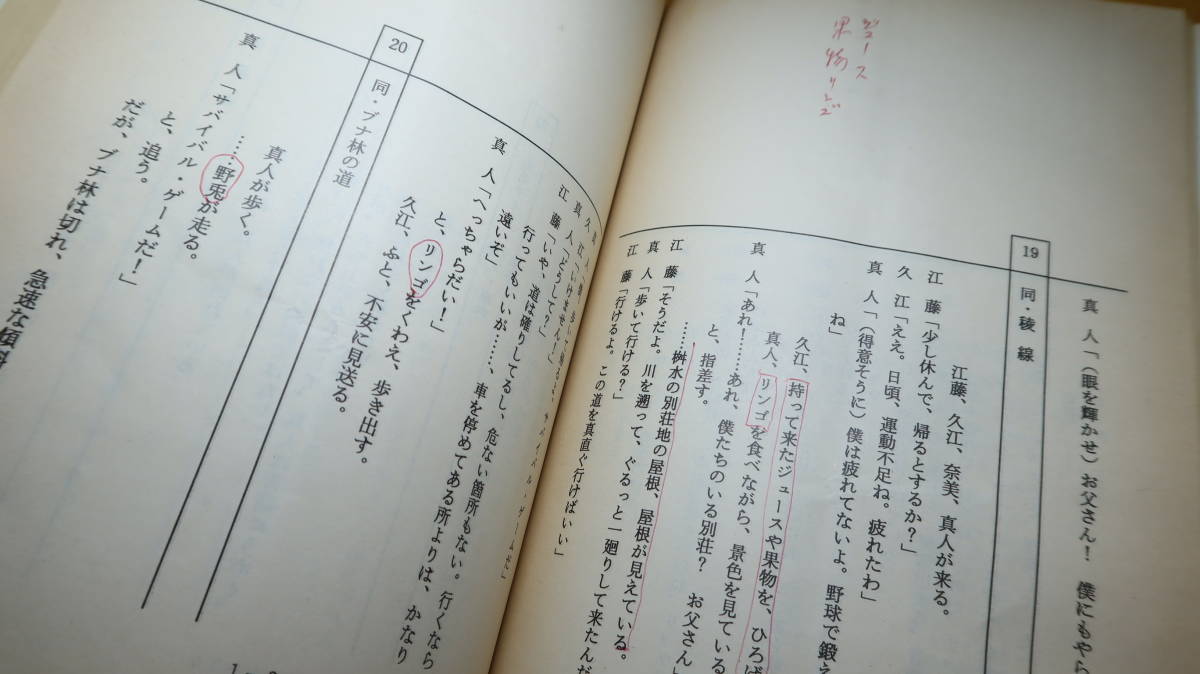 ジュース
果物リンゴ
真 人「(眼を輝かせ)お父さん! 僕にもやら
19 同・稜 線
江藤、久江、奈美、真人が来る。
江 藤「少し休んで、帰るとするか?」
久 江「ええ。日頃、運動不足ね。疲れたわ」
真 人「(得意そうに)僕は疲れてないよ。野球で鍛え
ね」
久江、持って来たジュースや果物を、ひろげ
真人、リンゴを食べながら、景色を見ている
真 人「あれ!……あれ、僕たちのいる別荘? お父さん」
と、指差す。
……桝水の別荘地の屋根、屋根が見えている。
江 藤「そうだよ。川を遡って、ぐるっと一廻りして来たんだ
真 人「歩いて行ける?」
江 藤「行けるよ。この道を真直ぐ行けばいい」
サバイバル・ゲームだ」
久 江「いけません」
真 人「どうして?」
江 藤「いや、道は確りしてるし、危ない箇所もない。行くなら
行ってもいいが……、車を停めてある所よりは、かなり
遠いぞ」
真 人「へっちゃらだい!」
と、リンゴをくわえ、歩き出す。
久江、ふと、不安に見送る。
20 同・ブナ林の道
真人が歩く。
……野兎が走る。
真 人「サバイバル・ゲームだ!」
と、追う。
だが、ブナ林は切れ、急速な傾斜